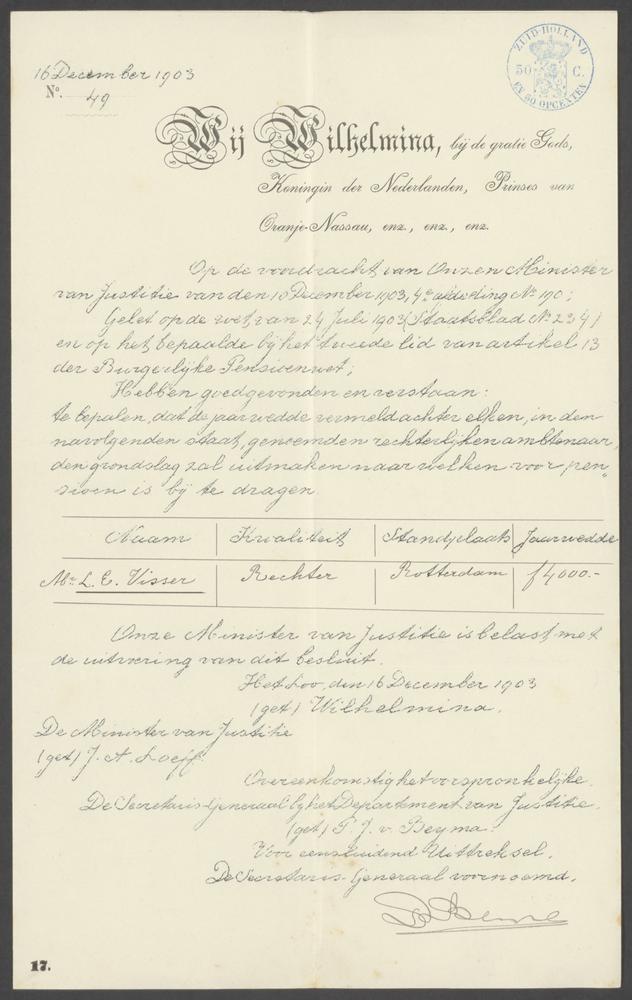 ZUID-HOLLAND
50 C.
EN 50 OPCENTEN
16 December 1903
No. 49
Wij Wilhelmina, bij de gratie Gods,
Koningin der Nederlanden, Prinses van
Oranje-Nassau, enz., enz., enz.
Op de voordracht van Onzen Minister
van Justitie van den 10 December 1903, 4e afdeeling No 190;
Gelet op de wet van 24 Juli 1903 (Staatsblad No 234)
en op het bepaalde bij het tweede lid van artikel 13
der Burgerlijke Pensioenwet;
Hebben goedgevonden en verstaan:
te bepalen, dat de jaarwedde vermeld achter elken, in den
navolgenden staat, genoemden rechterlijken ambtenaar,
den grondslag zal uitmaken naar welken voor pen„
sioen is bij te dragen.
Naam Kwaliteit Standplaats Jaarwedde
Mr. L. E. Visser Rechter Rotterdam f 4000.-
Onze Minister van Justitie is belast met
de uitvoering van dit besluit.
Het Loo, den 16 December 1903
(get) Wilhelmina.
De Minister van Justitie
(get) J. A. Loeff.
Overeenkomstig het oorspronkelijke.
De Secretaris-Generaal bij het Departement van Justitie.
(get) P. J. v. Beyma.
Voor eensluidend Uittreksel.
De Secretaris-Generaal voornoemd,
17.